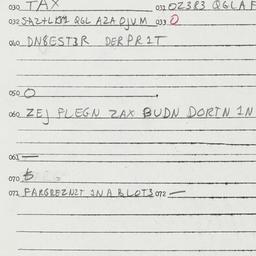 030 TAX 031 OZ3R3 QGLA
032 QGL AZA OJVM 033 O
040 DN8EST3R DERPR1T
050 O
060 ZEJ PLEGN ZAX BUDN DORTN 1N
061 —
070
071 FARGREZNZT 1NA BLOT3 072 —